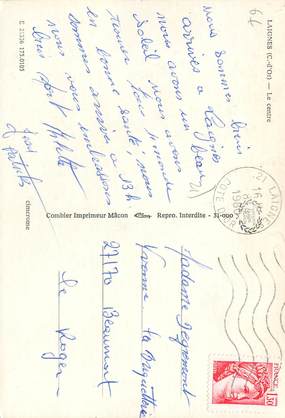 LAIGNES (C.-d'Or) — Le centre
nous sommes bien
arrivés à Laignes
nous avons un beau
soleil nous avons
trouver tous le monde
en bonne santé, nous
sommes arrivés a 13h
nous vous embrassons
bien fort
C 21336 173.0105
cimerome
Combier Imprimeur Mâcon Repro. Interdite - 31-000
21 LAIGNES
COTE D'OR
Madame
Yvonne La
27170 Beaumont
Le Roger
FRANCE
1,30